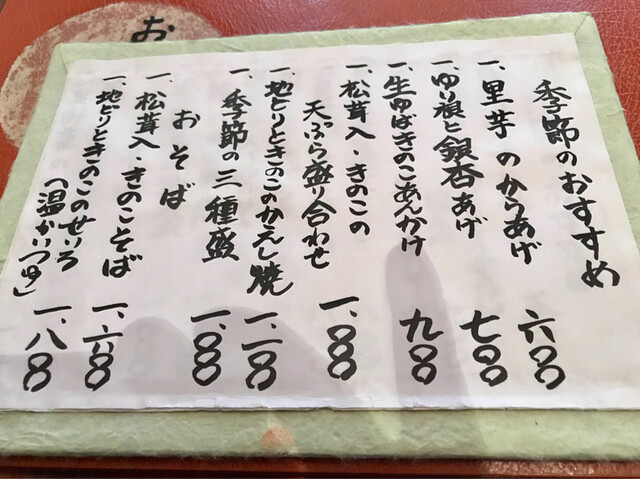 お
季節のおすすめ
一、里芋のからあげ 六〇〇
一、ゆり根と銀杏あげ 七〇〇
一、生ゆばきのこあんかけ 九〇〇
一、松茸入・きのこの
天ぷら盛り合わせ 一、〇〇〇
一、地どりときのこのかえし焼 一、一〇〇
一、季節の三種盛 一、〇〇〇
おそば
一、松茸入・きのこそば 一、六〇〇
一、地どりときのこのせいろ
(温かいつゆ) 一、八〇〇